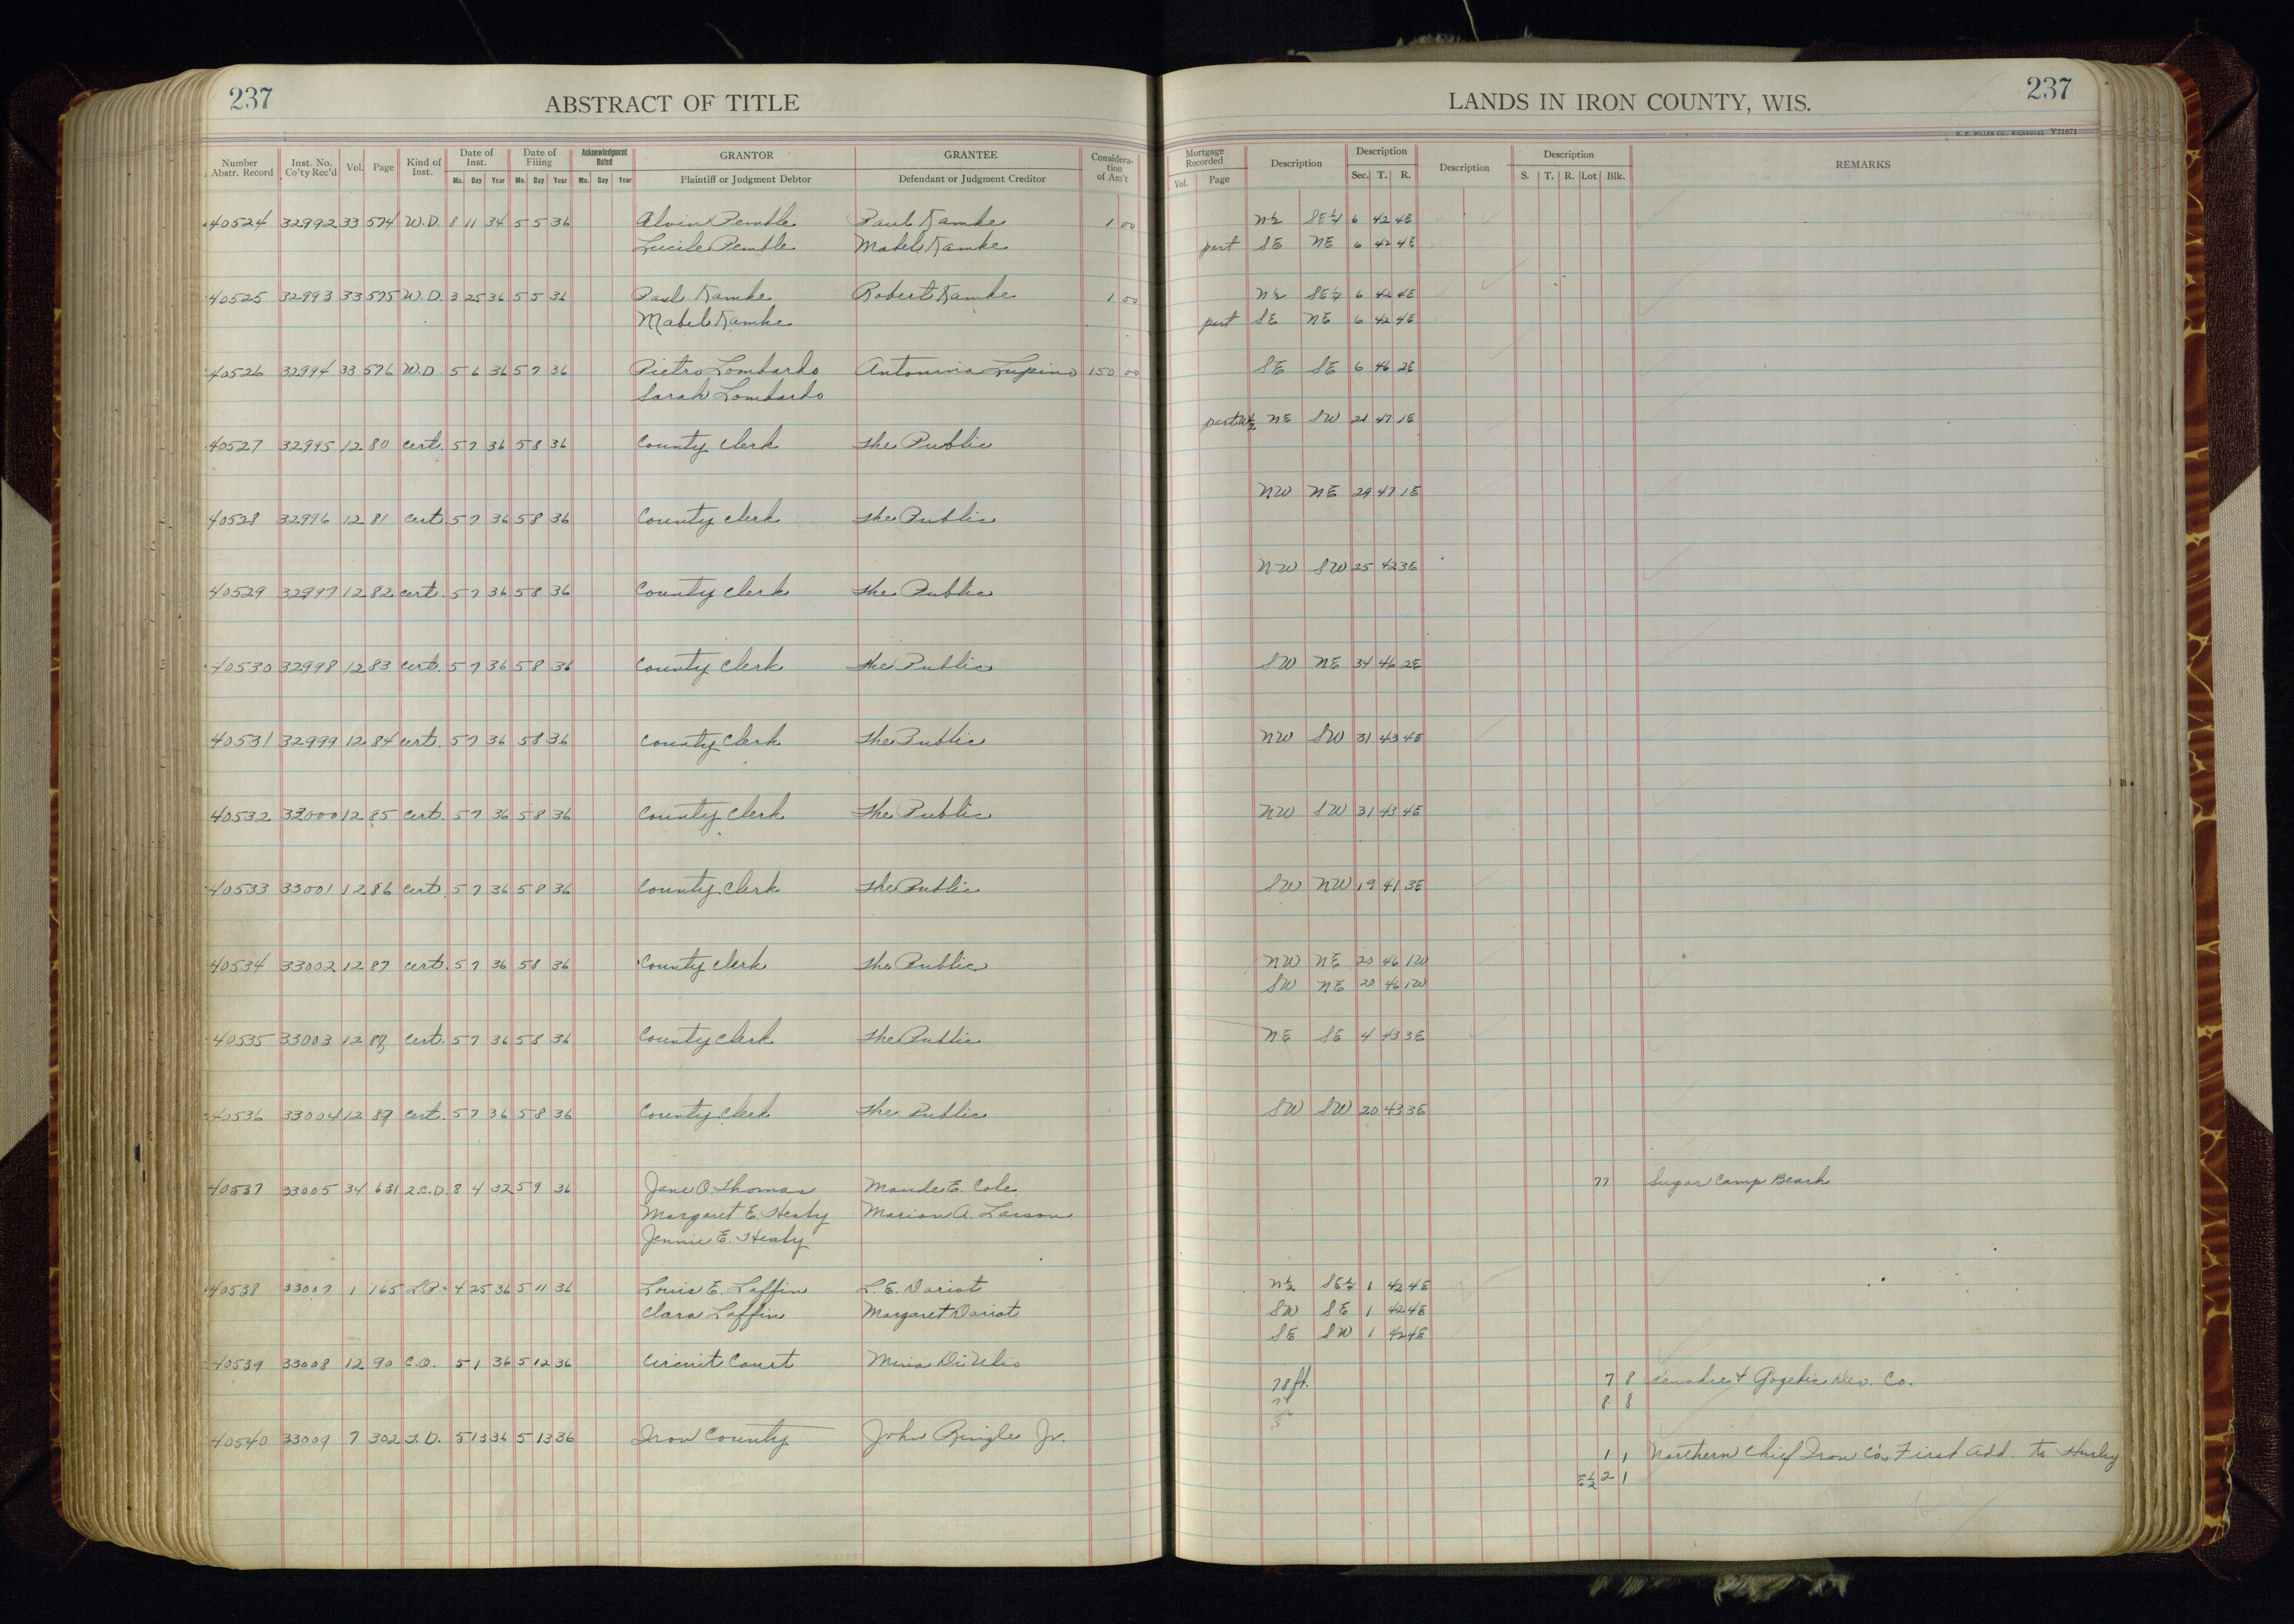 237 ABSTRACT OF TITLE
LANDS IN IRON COUNTY, WIS. 237
H. C. MILLER CO., MILWAUKEE Y21671
Number Abstr. Record Inst. No. Co'ty Rec'd Vol. Page Kind of Inst. Date of Inst. Mo. Day Year Date of Filing Mo. Day Year Acknowledgment Dated Mo. Day Year GRANTOR Plaintiff or Judgment Debtor GRANTEE Defendant or Judgment Creditor Consideration of Am't
Mortgage Recorded Vol. Page Description Description Sec. T. R. Description Description S. T. R. Lot Blk. REMARKS
40524 32992 33 574 W.D. 8 11 34 5 5 36 Alvin Pemble Paul Kamke 1 00 N½ SE¼ 6 42 4E
Lucile Pemble Mabel Kamke part SE NE 6 42 4E
40525 32993 33 575 W.D. 3 25 36 5 5 36 Paul Kamke Robert Kamke 1 00 N½ SE¼ 6 42 4E
Mabel Kamke part SE NE 6 42 4E
40526 32994 33 576 W.D 5 6 36 5 7 36 Pietro Lombardo Antonina Lupino 150 00 SE SE 6 46 2E
Sarah Lombardo
part W½ NE SW 21 47 1E
40527 32995 12 80 Cert. 5 7 36 5 8 36 County Clerk The Public
NW NE 29 47 1E
40528 32996 12 81 Cert 5 7 36 5 8 36 County Clerk The Public
NW SW 25 42 3E
40529 32997 12 82 Cert. 5 7 36 5 8 36 County Clerk The Public
40530 32998 12 83 Cert. 5 7 36 5 8 36 County Clerk The Public SW NE 34 46 2E
40531 32999 12 84 Cert. 5 7 36 5 8 36 County Clerk The Public NW SW 31 43 4E
40532 33000 12 85 Cert. 5 7 36 5 8 36 County Clerk The Public NW SW 31 43 4E
40533 33001 12 86 Cert 5 7 36 5 8 36 County Clerk The Public SW NW 19 41 3E
40534 33002 12 87 Cert. 5 7 36 5 8 36 County Clerk The Public NW NE 20 46 1W
SW NE 20 46 1W
40535 33003 12 88 Cert. 5 7 36 5 8 36 County Clerk The Public NE SE 4 43 3E
40536 33004 12 89 Cert. 5 7 36 5 8 36 County Clerk The Public SW SW 20 43 3E
40537 33005 34 631 Q.C.D. 8 4 32 5 9 36 Jane O. Thomas Maude E. Cole Sugar Camp Beach
Margaret E. Healy Marion A. Larson
Jennie E. Healy
40538 33007 1 165 L.P. 4 25 36 5 11 36 Louis E. Laffin L. E. Dariot N½ SE¼ 1 42 4E
Clara Laffin Margaret Dariot SW SE 1 42 4E
SE SW 1 42 4E
40539 33008 12 90 C.O. 5 1 36 5 12 36 Circuit Court
7 8 Gogebic Dev. Co.
8 8
40540 33009 7 302 T.D. 5 13 36 5 13 36 Iron County John Ringle Jr.
1 1 Northern Chief Iron Co's First Add. to Hurley
E½ 2 1